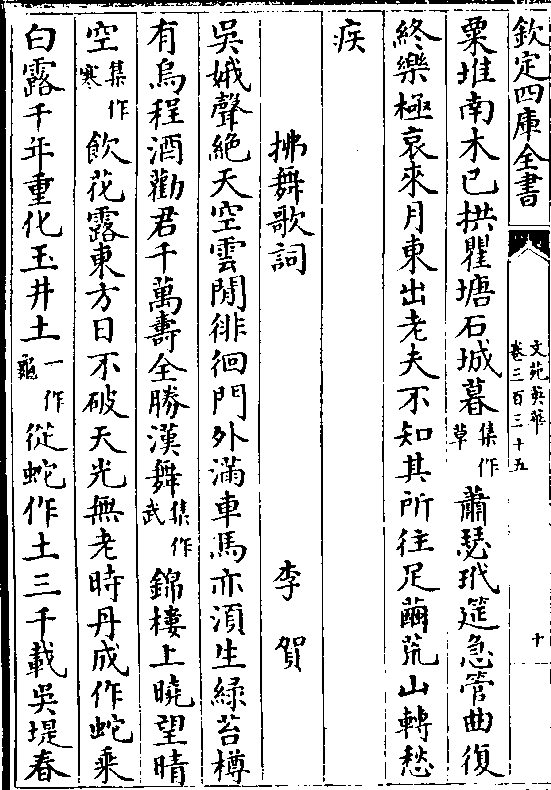 欽定四庫全書
文苑英華
卷三百三十五
十
粟堆南木已拱瞿塘石城暮集作草蕭瑟玳筵急管曲復
終樂極哀來月東出老夫不知其所往足繭荒山轉愁
疾
拂舞歌詞 李賀
吳娥聲絶天空雲閒徘徊門外滿車馬亦須生緑苔樽
有烏程酒勸君千萬壽全勝漢舞集作武錦樓上曉望晴
空集作寒飲花露東方日不破天光無老時丹成作蛇乗
白露千年重化玉井土一作龜從蛇作土三千載吳堤春